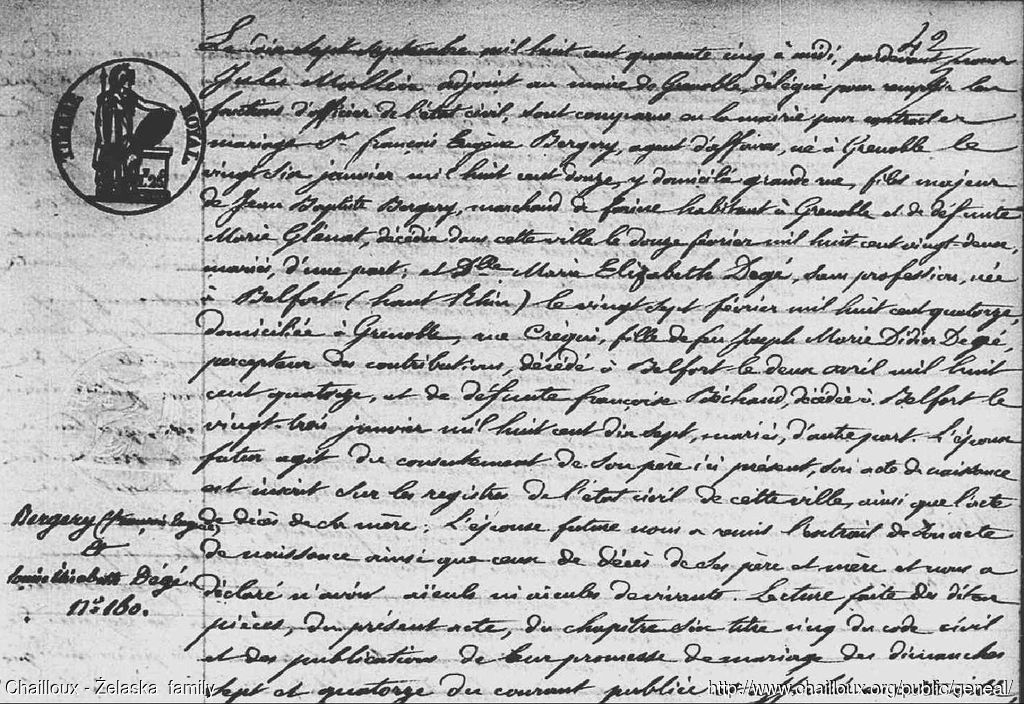 42
TIMBRE ROYAL
Le dix sept septembre mil huit cent quarante cinq à midi, pardevant nous
Jules adjoint au maire de Grenoble, délégué pour remplir les
fonctions d'officier de l'état civil, sont comparus en la mairie pour contracter
mariage Sr. françois Eugène Bergery, agent d'affaires, né à Grenoble le
vingt six janvier mil huit cent douze, y domicilié grande rue, fils majeur
de Jean Baptiste Bergery, marchand de farine habitant à Grenoble et de défunte
Marie Glénat, décédée dans cette ville le douze février mil huit cent vingt-deux,
mariés, d'une part; et Dlle Marie Elizabeth Degé, sans profession, née
à Belfort (haut Rhin) le vingt sept février mil huit cent quatorze,
domiciliée à Grenoble, rue Créqui, fille de feu Joseph Marie Didier Degé,
percepteur des contributions, décédé à Belfort le deux avril mil huit
cent quatorze, et de défunte françoise Béchaud, décédée à Belfort le
vingt-trois janvier mil huit cent dix sept, mariés, d'autre part. L'époux
futur agit du consentement de son père ici présent, son acte de naissance
est inscrit sur les registres de l'état civil de cette ville, ainsi que l'acte
de décès de sa mère. L'épouse future nous a remis l'extrait de son acte
de naissance ainsi que ceux de décès de ses père et mère et nous a
déclaré n'avoir aïeuls ni aïeules devivants. Lecture faite des dites
pièces, du présent acte, du chapitre six titre cinq du code civil
et des publications de leur promesse de mariage des dimanches
sept et quatorze du courant publiée et
Bergery (françois Eugène
et
Degé.
n° 160.
Chailloux - Żelaska family
http://www.chailloux.org/public/geneal/